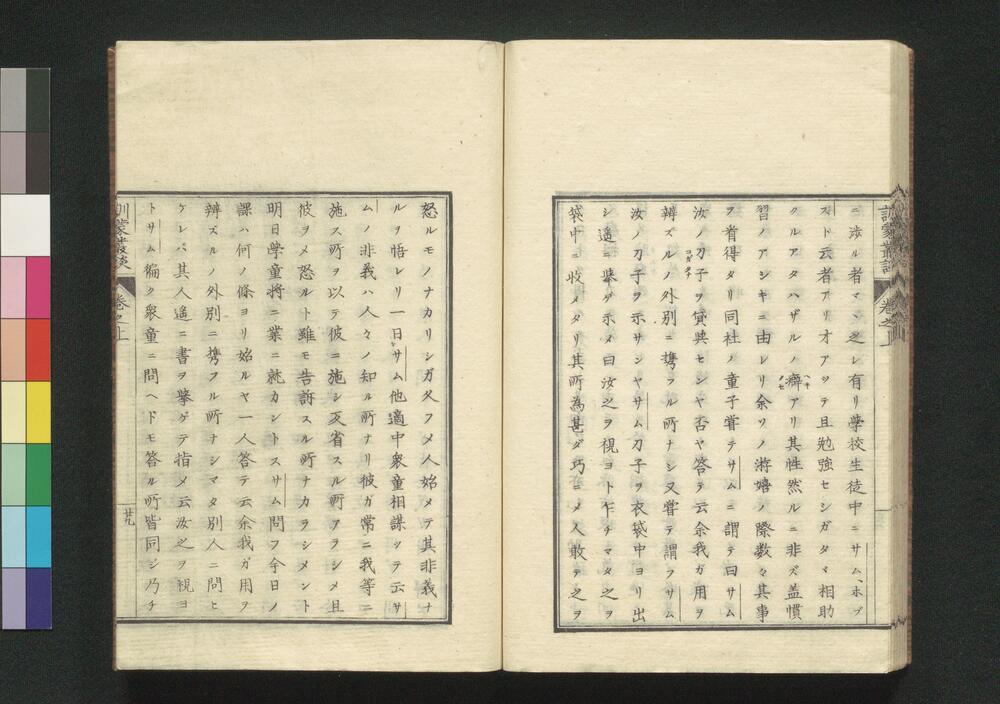 ニ渉ル者マヽ之レ有リ學校生徒中ニサム、ホプ
ストト云者アリオアツテ且勉強セシガタマ相助
クルアタハザルノ癖アリ其性然ルニ非ズ盖慣
習ノアシキニ由レリ余ソノ游嬉ノ際数々其事
ヲ省得タリ同社ノ童子嘗テサムニ謂テ曰サム
汝ノ刀子ヲ貸與セシヤ否ヤ答テ云余我ガ用ヲ
辨ズルノ外別ニ携フル所ナシ又嘗テ謂フサム
汝ノ刀子ヲ示サシヤサム刀子ヲ衣袋中ヨリ出
シ遥ニ擧ゲ示メ曰汝之ヲ視ヨト乍チマタ之ヲ
袋中ニ收メタリ其所為甚ダ巧ニメ人敢テ之ヲ
怒ルモノナカリシガ久フメ人始メテ其非義ナ
ルヲ悟レリ一日サム他適中衆童相謀ツテ云サ
ムノ非義ハ人々ノ知ル所ナリ彼ガ常ニ我等ニ
施ス所ヲ以テ彼ニ施シ反省スル所アラシメ且
彼ヲメ恐ルト雖モ告訴スル所ナカラシメント
明日學童將ニ業ニ就カントスサム問フ今日ノ
課ハ何ノ條ヨリ始ルヤ一人答テ云余我ガ用ヲ
辨ズルノ外別ニ携フル所ナシマタ別人ニ問ヒ
ケレバ其人遥ニ書ヲ擧ゲテ指メ云汝之ヲ視ヨ
トサム徧ク衆童ニ問ヘドモ答ル所皆同ジ乃チ
訓蒙叢談
巻之上
廿九